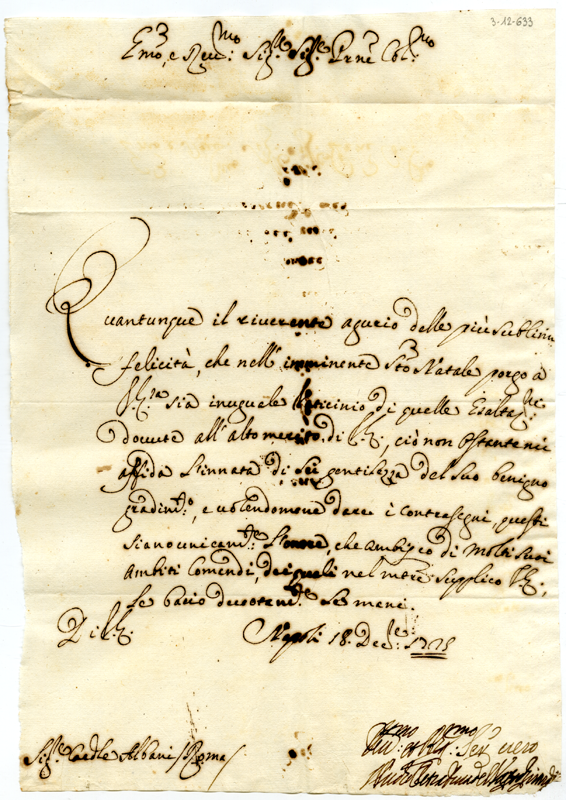 3-12-633
Emo, e Revmo: Sigre Sigre Prne Colmo
Quantunque il riverente agurio delle più sublimi
felicità, che nell'imminente Sto Natale porgo a
V. Em.za sia inuguale Vaticinio di quelle Esalta.ni
dovute all'alto merito di V. E., ciò non ostante mi
affida l'innata di Lei gentilezza del suo benigno
gradim.to, e volendomene dare i contrasegni, questi
siano unicam.te l'onore, che ambisco di molti suoi
ambiti Comandi, dei quali nel mtre supplico V. E.,
le bacio devotam.te le mani.
Di V. E.
Napoli 18. Dec.re 1725
Sigre Cardle Albani / Roma /
Servo vero